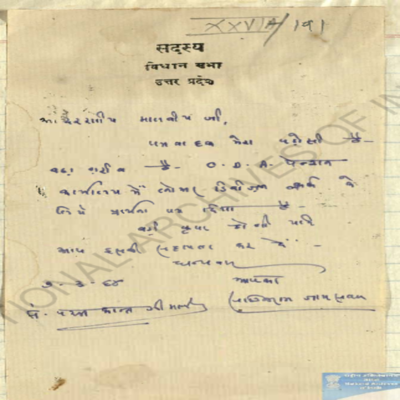 XXVIA/191
सदस्य
विधान सभा
उत्तर प्रदेश
आदरणीय मालवीय जी,
पत्रवाहक मेरा पड़ोसी है-
बड़ा गरीब है- O.D.A. पेन्शन
कार्यालय में लोअर डिवीज़न क्लर्क के
लिये प्रार्थना पत्र दिया है-
बड़ी कृपा होगी यदि
आप इसकी सहायता कर दें-
धन्यवाद
आपका
NATIONAL ARCHIVES OF IN